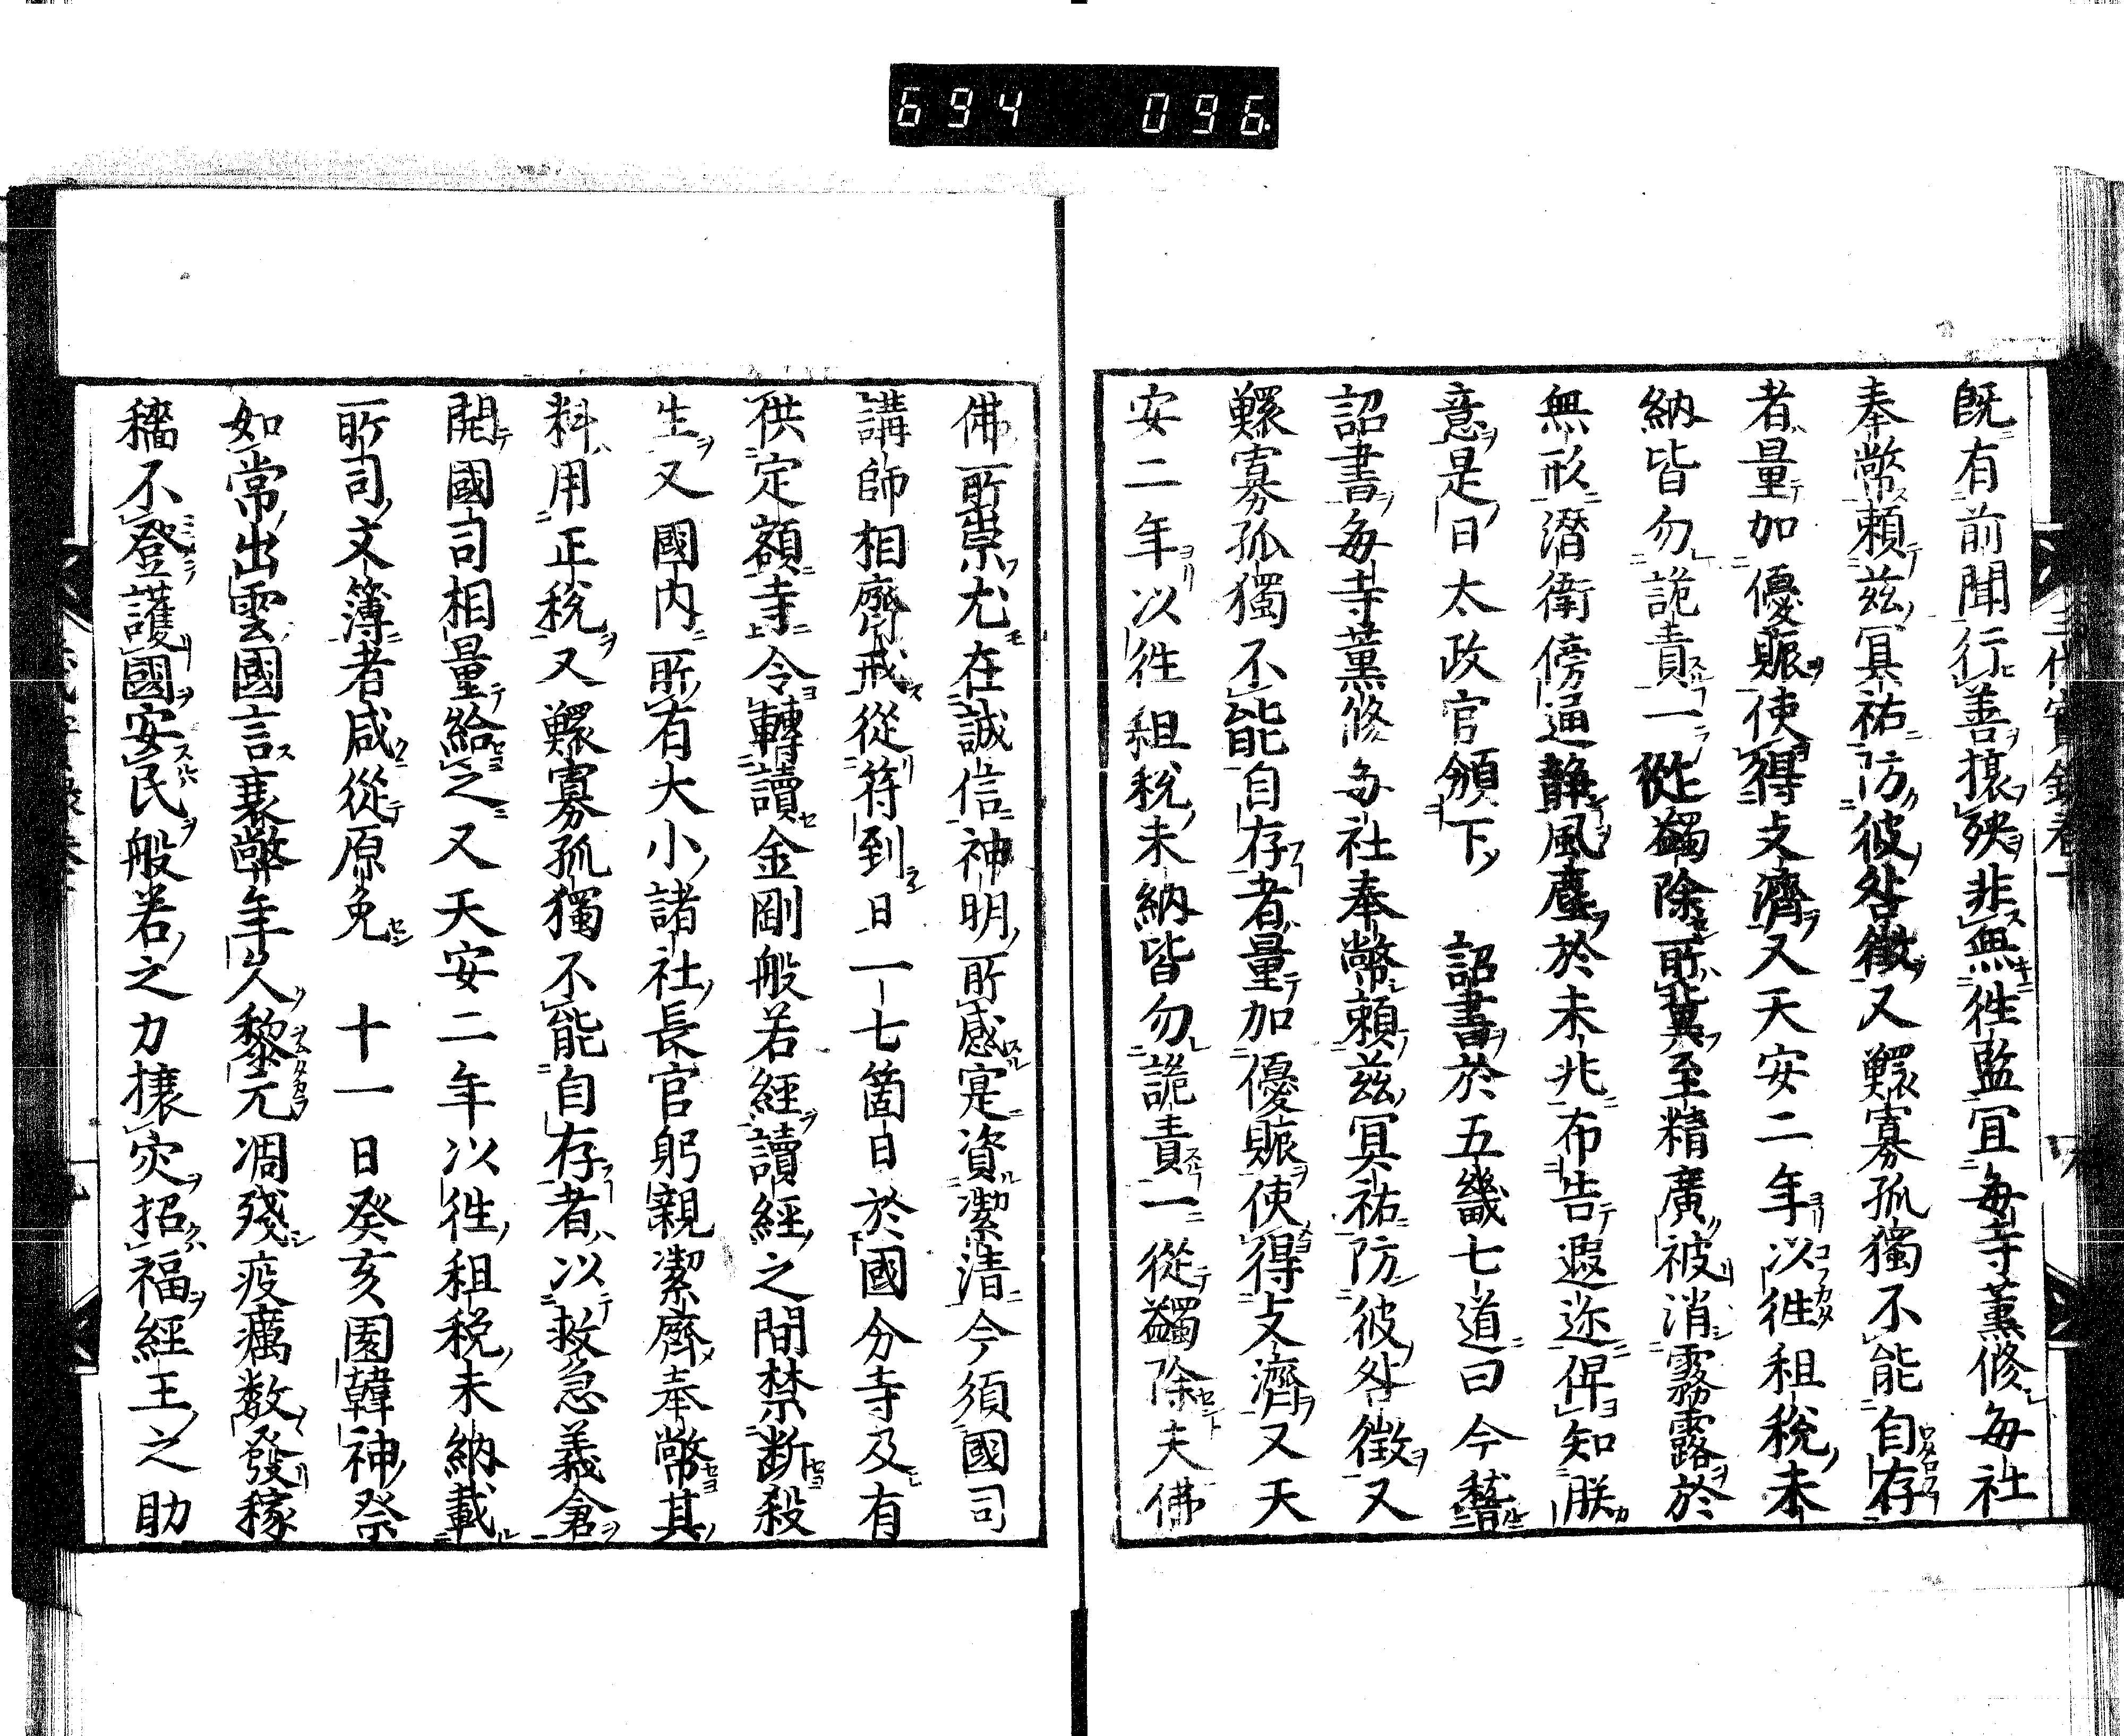 694 096
既有前聞行善攘殃非無徃監冝毎寺薫修毎社
奉幣頼茲冥祐防彼咎徴又鰥寡孤獨不能自存
者量加優賑使得支濟又天安二年以徃租税未
納皆勿詭責一從蠲除所冀至精廣被消霧露於
無形潛衛傍通静風塵於未兆布告遐迩俾知朕
意是日太政官頒下詔書於五畿七道曰今稽
詔書毎寺薫修毎社奉幣頼茲冥祐防彼咎徴又
鰥寡孤獨不能自存者量加優賑使得支濟又天
安二年以徃租税未納皆勿詭責一從蠲除夫佛
佛所崇尤在誠信神明所感寔資潔清今須國司
講師相齊戒從符到日一七箇日於國分寺及有
供定額寺令轉讀金剛般若經讀經之間禁断殺
生又國内所有大小諸社長官躬親潔齋奉幣其
料用正税又鰥寡孤獨不能自存者以救急義倉
開國司相量給之又天安二年以徃租税未納載
所司文簿者咸從原免 十一日癸亥園韓神祭
如常出雲國言衰弊年久黎元凋殘疫癘数發稼
穡不登護國安民般若之力攘灾招福經王之助